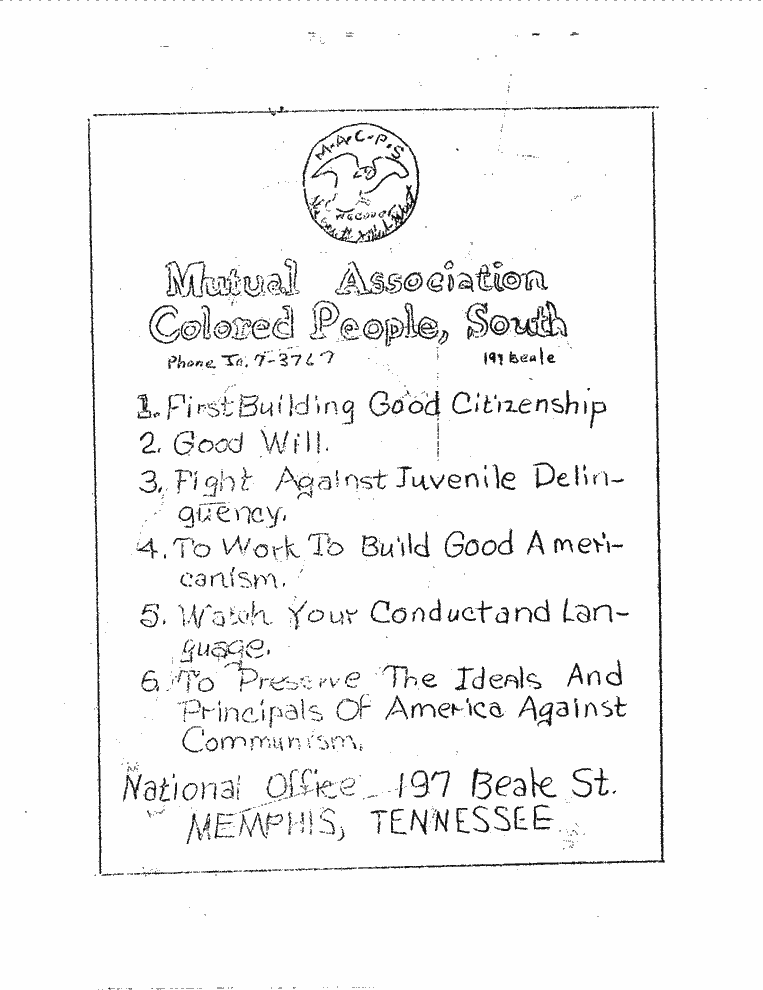 M.A.C.P.S
Mutual Association
Colored People, South
Phone Ja. 7-3767 197 Beale
1. First Building Good Citizenship
2. Good Will.
3. Fight Against Juvenile Delin-
quency.
4. To Work To Build Good Ameri-
canism.
5. Watch Your Conduct and Lan-
guage.
6. To Preserve The Ideals And
Principals Of America Against
Communism.
National Office 197 Beale St.
MEMPHIS, TENNESSEE